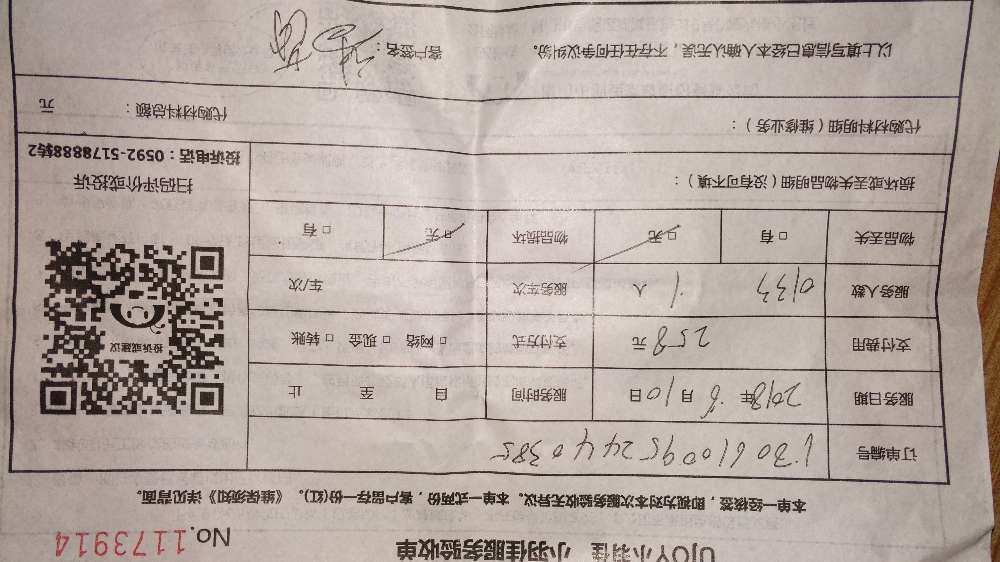 UJOY小羽佳 小羽佳服务验收单 No.1173914
本一单经核签，即视为对本次服务验收无异议。本单一式两份，客户留存一份(红)。《维保须知》详见背面。
订单编号
服务日期 2018年 6月10日 服务时间 自 至 止
支付费用 258 元 支付方式 □网络 □现金 □转账
服务人数 人 服务车次 车/次
物品丢失 □有 □无 物品损坏 □无 □有
投诉或建议
扫码评价或投诉
投诉电话：0592-5178888转2
损坏或丢失物品明细（没有可不填）：
代购材料明细（维修业务）： 代购材料总额： 元
以上填写信息已经本人确认无误，不存在任何争议纠纷。 客户签名：